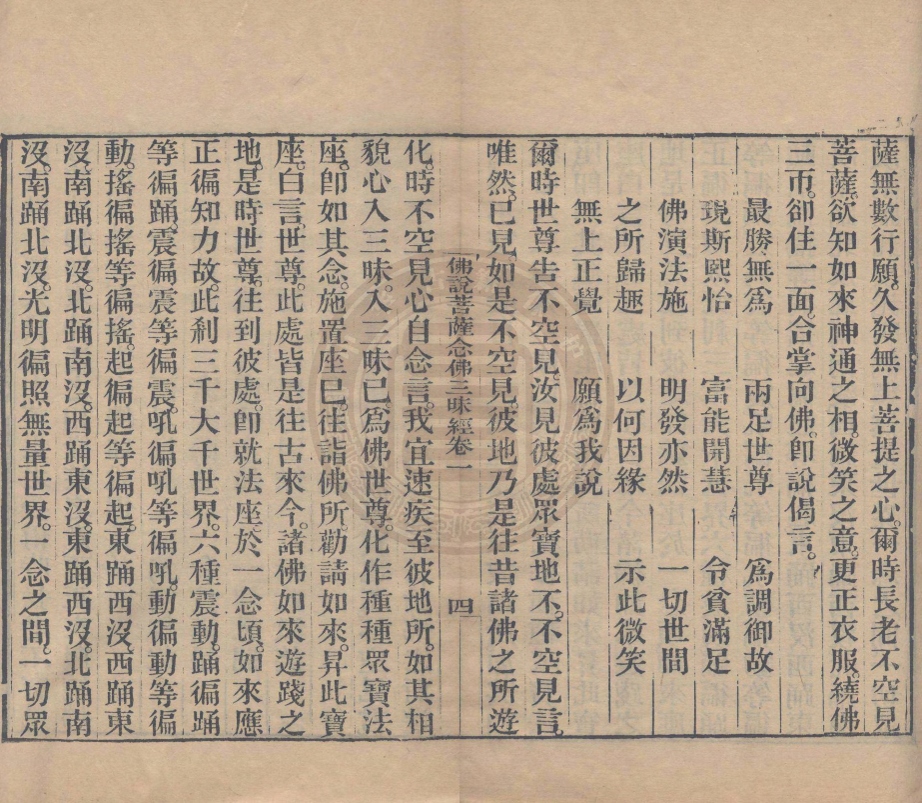 薩無數行願久發無上菩提之心爾時長老不空見
菩薩欲知如來神通之相微笑之意更正衣服繞佛
三帀卻住一面合掌向佛卽說偈言
最勝無爲　兩足世尊　爲調御故
現斯熙怡　富能開慧　令貧滿足
佛演法施　明發亦然　一切世間
之所歸趣　以何因緣　示此微笑
無上正覺　願爲我說
爾時世尊告不空見汝見彼處眾寶地不不空見言
唯然已見如是不空見彼地乃是往昔諸佛之所遊
佛說菩薩念佛三昧經卷一　四
化時不空見心自念言我宜速疾至彼地所如其相
貌心入三昧入三昧已爲佛世尊化作種種眾寶法
座卽如其念施置座已往詣佛所勸請如來昇此寶
座白言世尊此處皆是往古來今諸佛如來遊踐之
地是時世尊往到彼處卽就法座於一念頃如來應
正徧知力故此剎三千大千世界六種震動踊徧踊
等徧踊震徧震等徧震吼徧吼等徧吼動徧動等徧
動搖徧搖等徧搖起徧起等徧起東踊西沒西踊東
沒南踊北沒北踊南沒西踊東沒東踊西沒北踊南
沒南踊北沒光明徧照無量世界一念之間一切眾